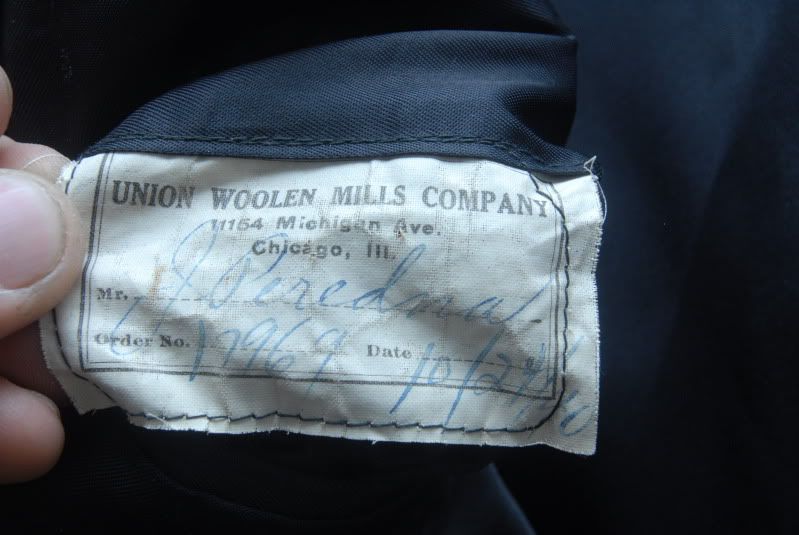 UNION WOOLEN MILLS COMPANY
11154 Michigan Ave.
Chicago, Ill.
Mr. J Peredna
Order No. 17969 Date 10/24/40